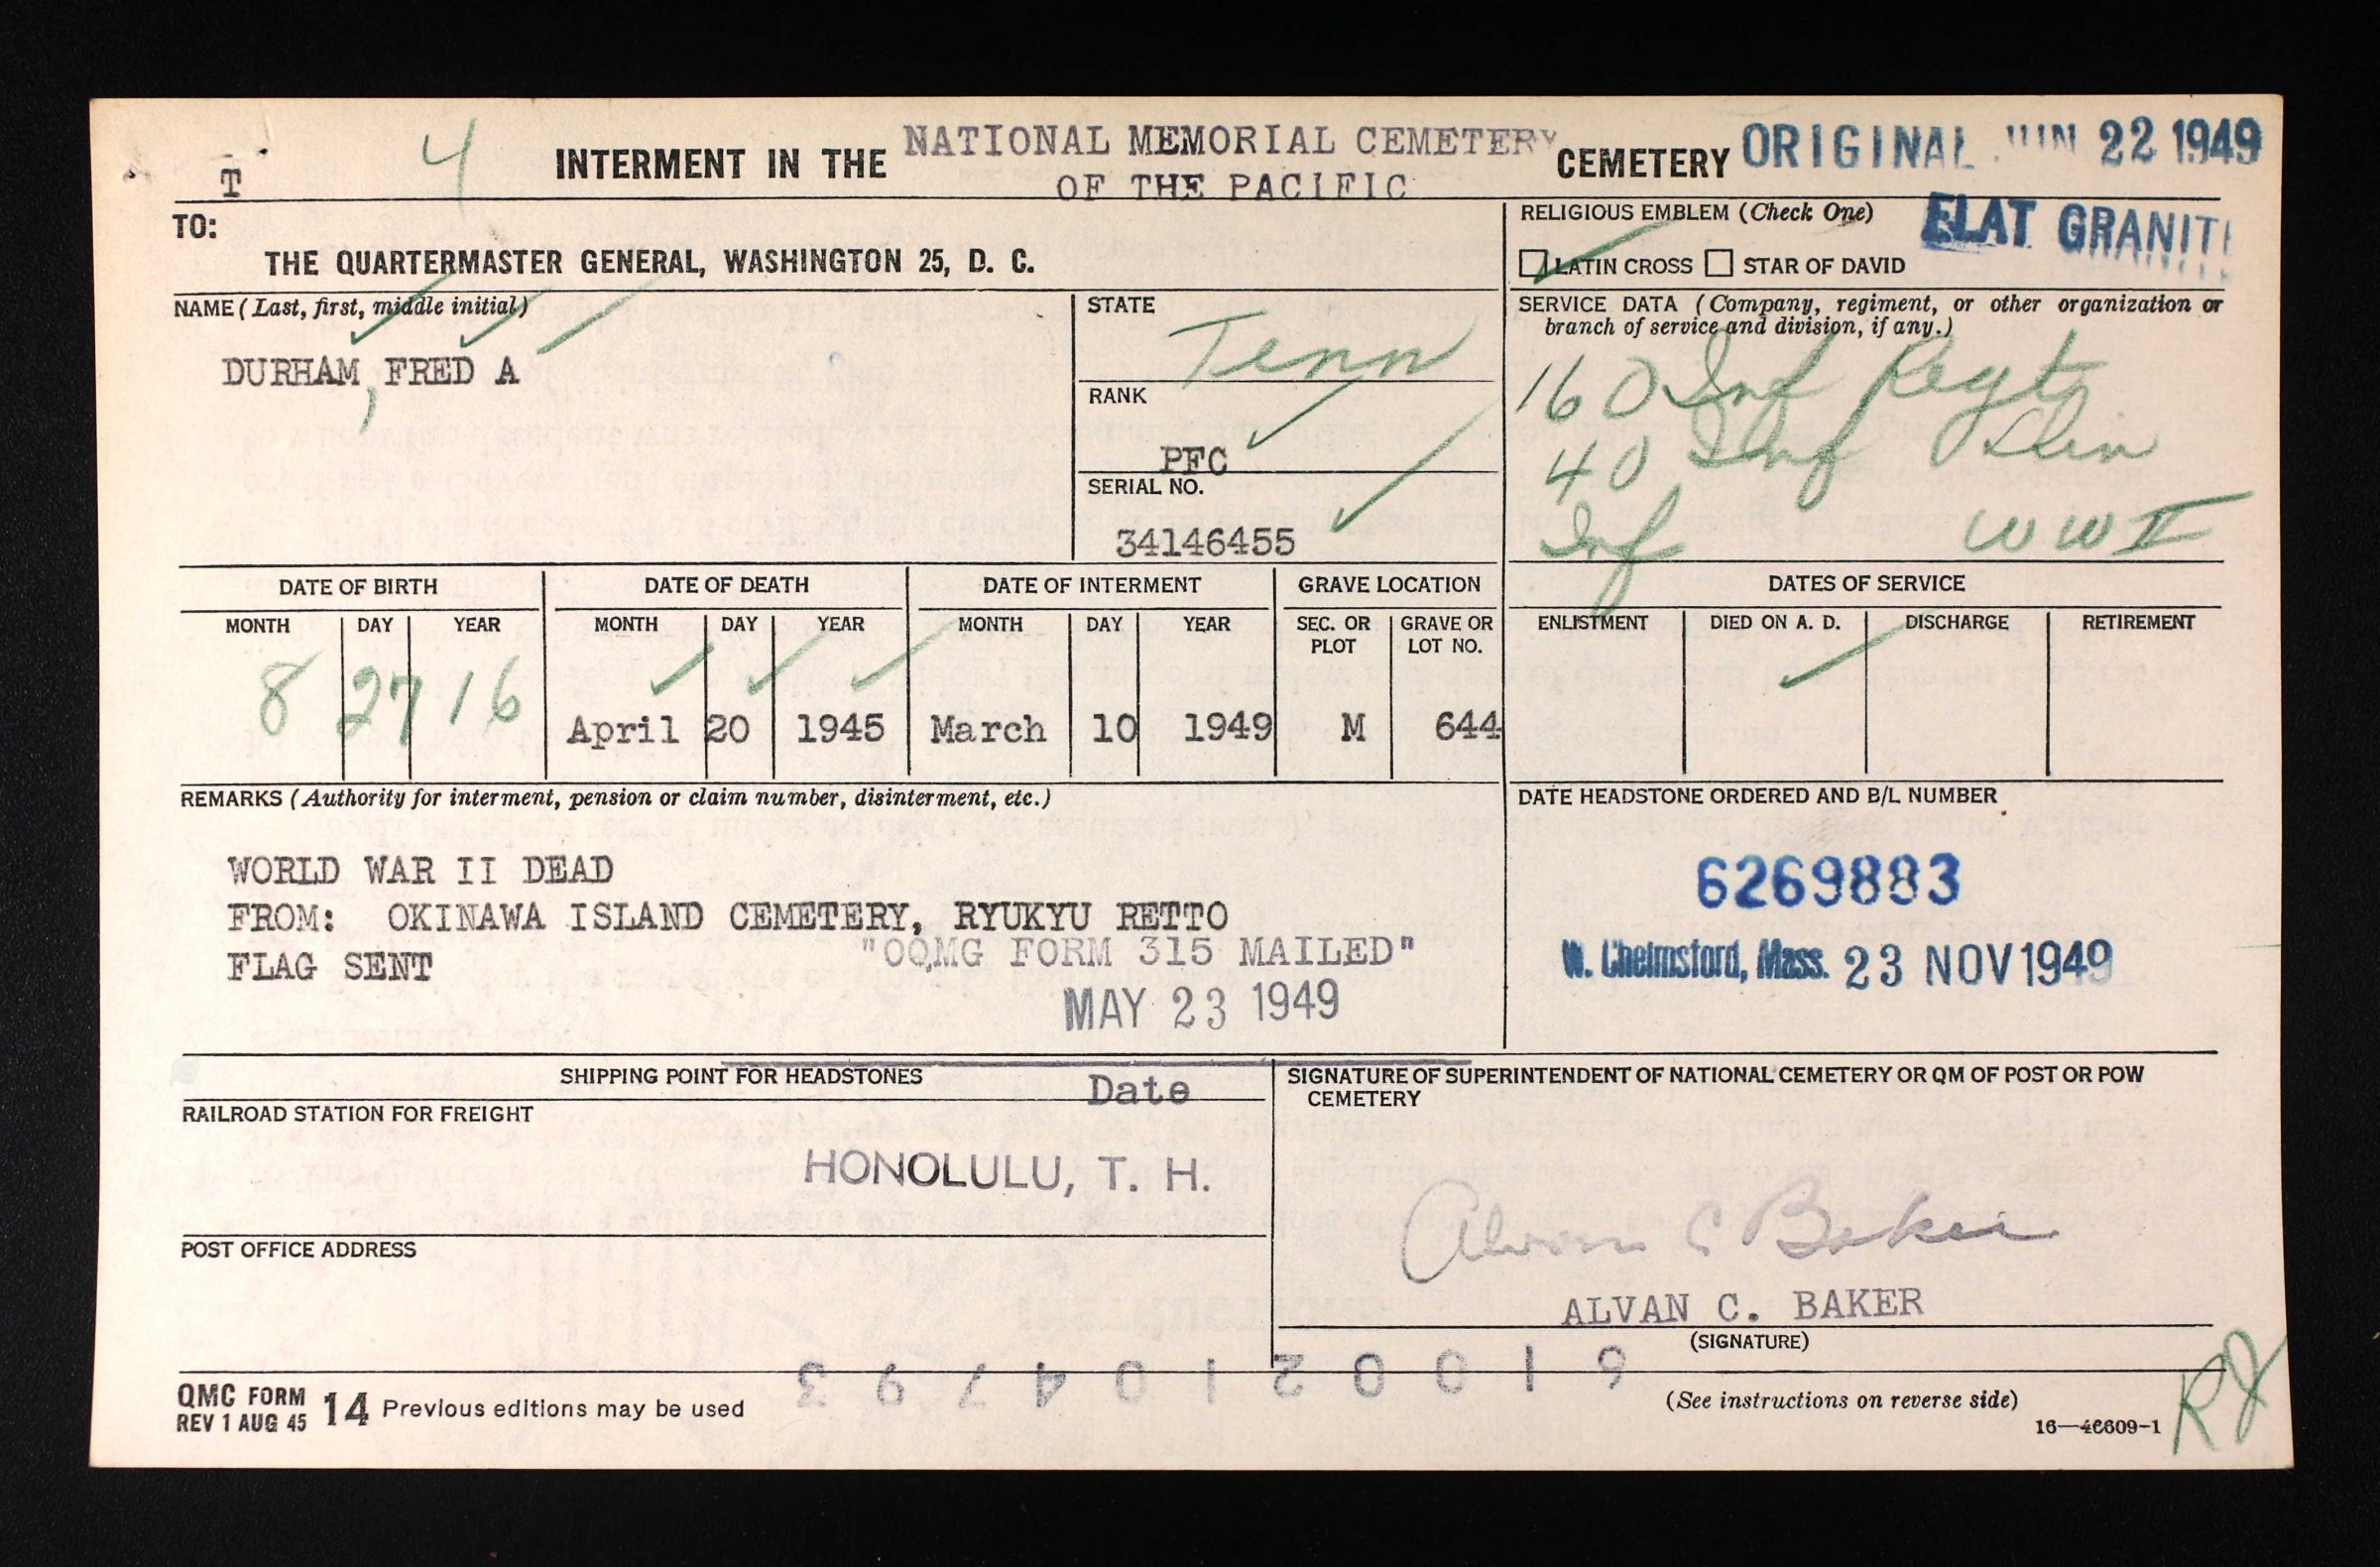 T 4 INTERMENT IN THE NATIONAL MEMORIAL CEMETERY CEMETERY ORIGINAL JUN 22 1949
OF THE PACIFIC
TO:
THE QUARTERMASTER GENERAL, WASHINGTON 25, D. C.
RELIGIOUS EMBLEM (Check One) FLAT GRANITE
LATIN CROSS STAR OF DAVID
NAME (Last, first, middle initial)
DURHAM, FRED A
STATE
Tenn
RANK
PFC
SERIAL NO.
34146455
SERVICE DATA (Company, regiment, or other organization or
branch of service and division, if any.)
160 Inf Regt
40 Inf Div
Inf WW II
DATE OF BIRTH DATE OF DEATH DATE OF INTERMENT GRAVE LOCATION
MONTH DAY YEAR MONTH DAY YEAR MONTH DAY YEAR SEC. OR PLOT GRAVE OR LOT NO.
8 27 16 April 20 1945 March 10 1949 M 644
DATES OF SERVICE
ENLISTMENT DIED ON A. D. DISCHARGE RETIREMENT
REMARKS (Authority for interment, pension or claim number, disinterment, etc.)
WORLD WAR II DEAD
FROM: OKINAWA ISLAND CEMETERY, RYUKYU RETTO
"OQMG FORM 315 MAILED"
FLAG SENT
MAY 23 1949
DATE HEADSTONE ORDERED AND B/L NUMBER
6269883
W. Chelmsford, Mass. 23 NOV 1949
SHIPPING POINT FOR HEADSTONES Date
RAILROAD STATION FOR FREIGHT
HONOLULU, T. H.
POST OFFICE ADDRESS
SIGNATURE OF SUPERINTENDENT OF NATIONAL CEMETERY OR QM OF POST OR POW
CEMETERY
Alvan C Baker
ALVAN C. BAKER
(SIGNATURE)
61002104793
QMC FORM
REV 1 AUG 45 14 Previous editions may be used
(See instructions on reverse side)
16—46609-1
RJ